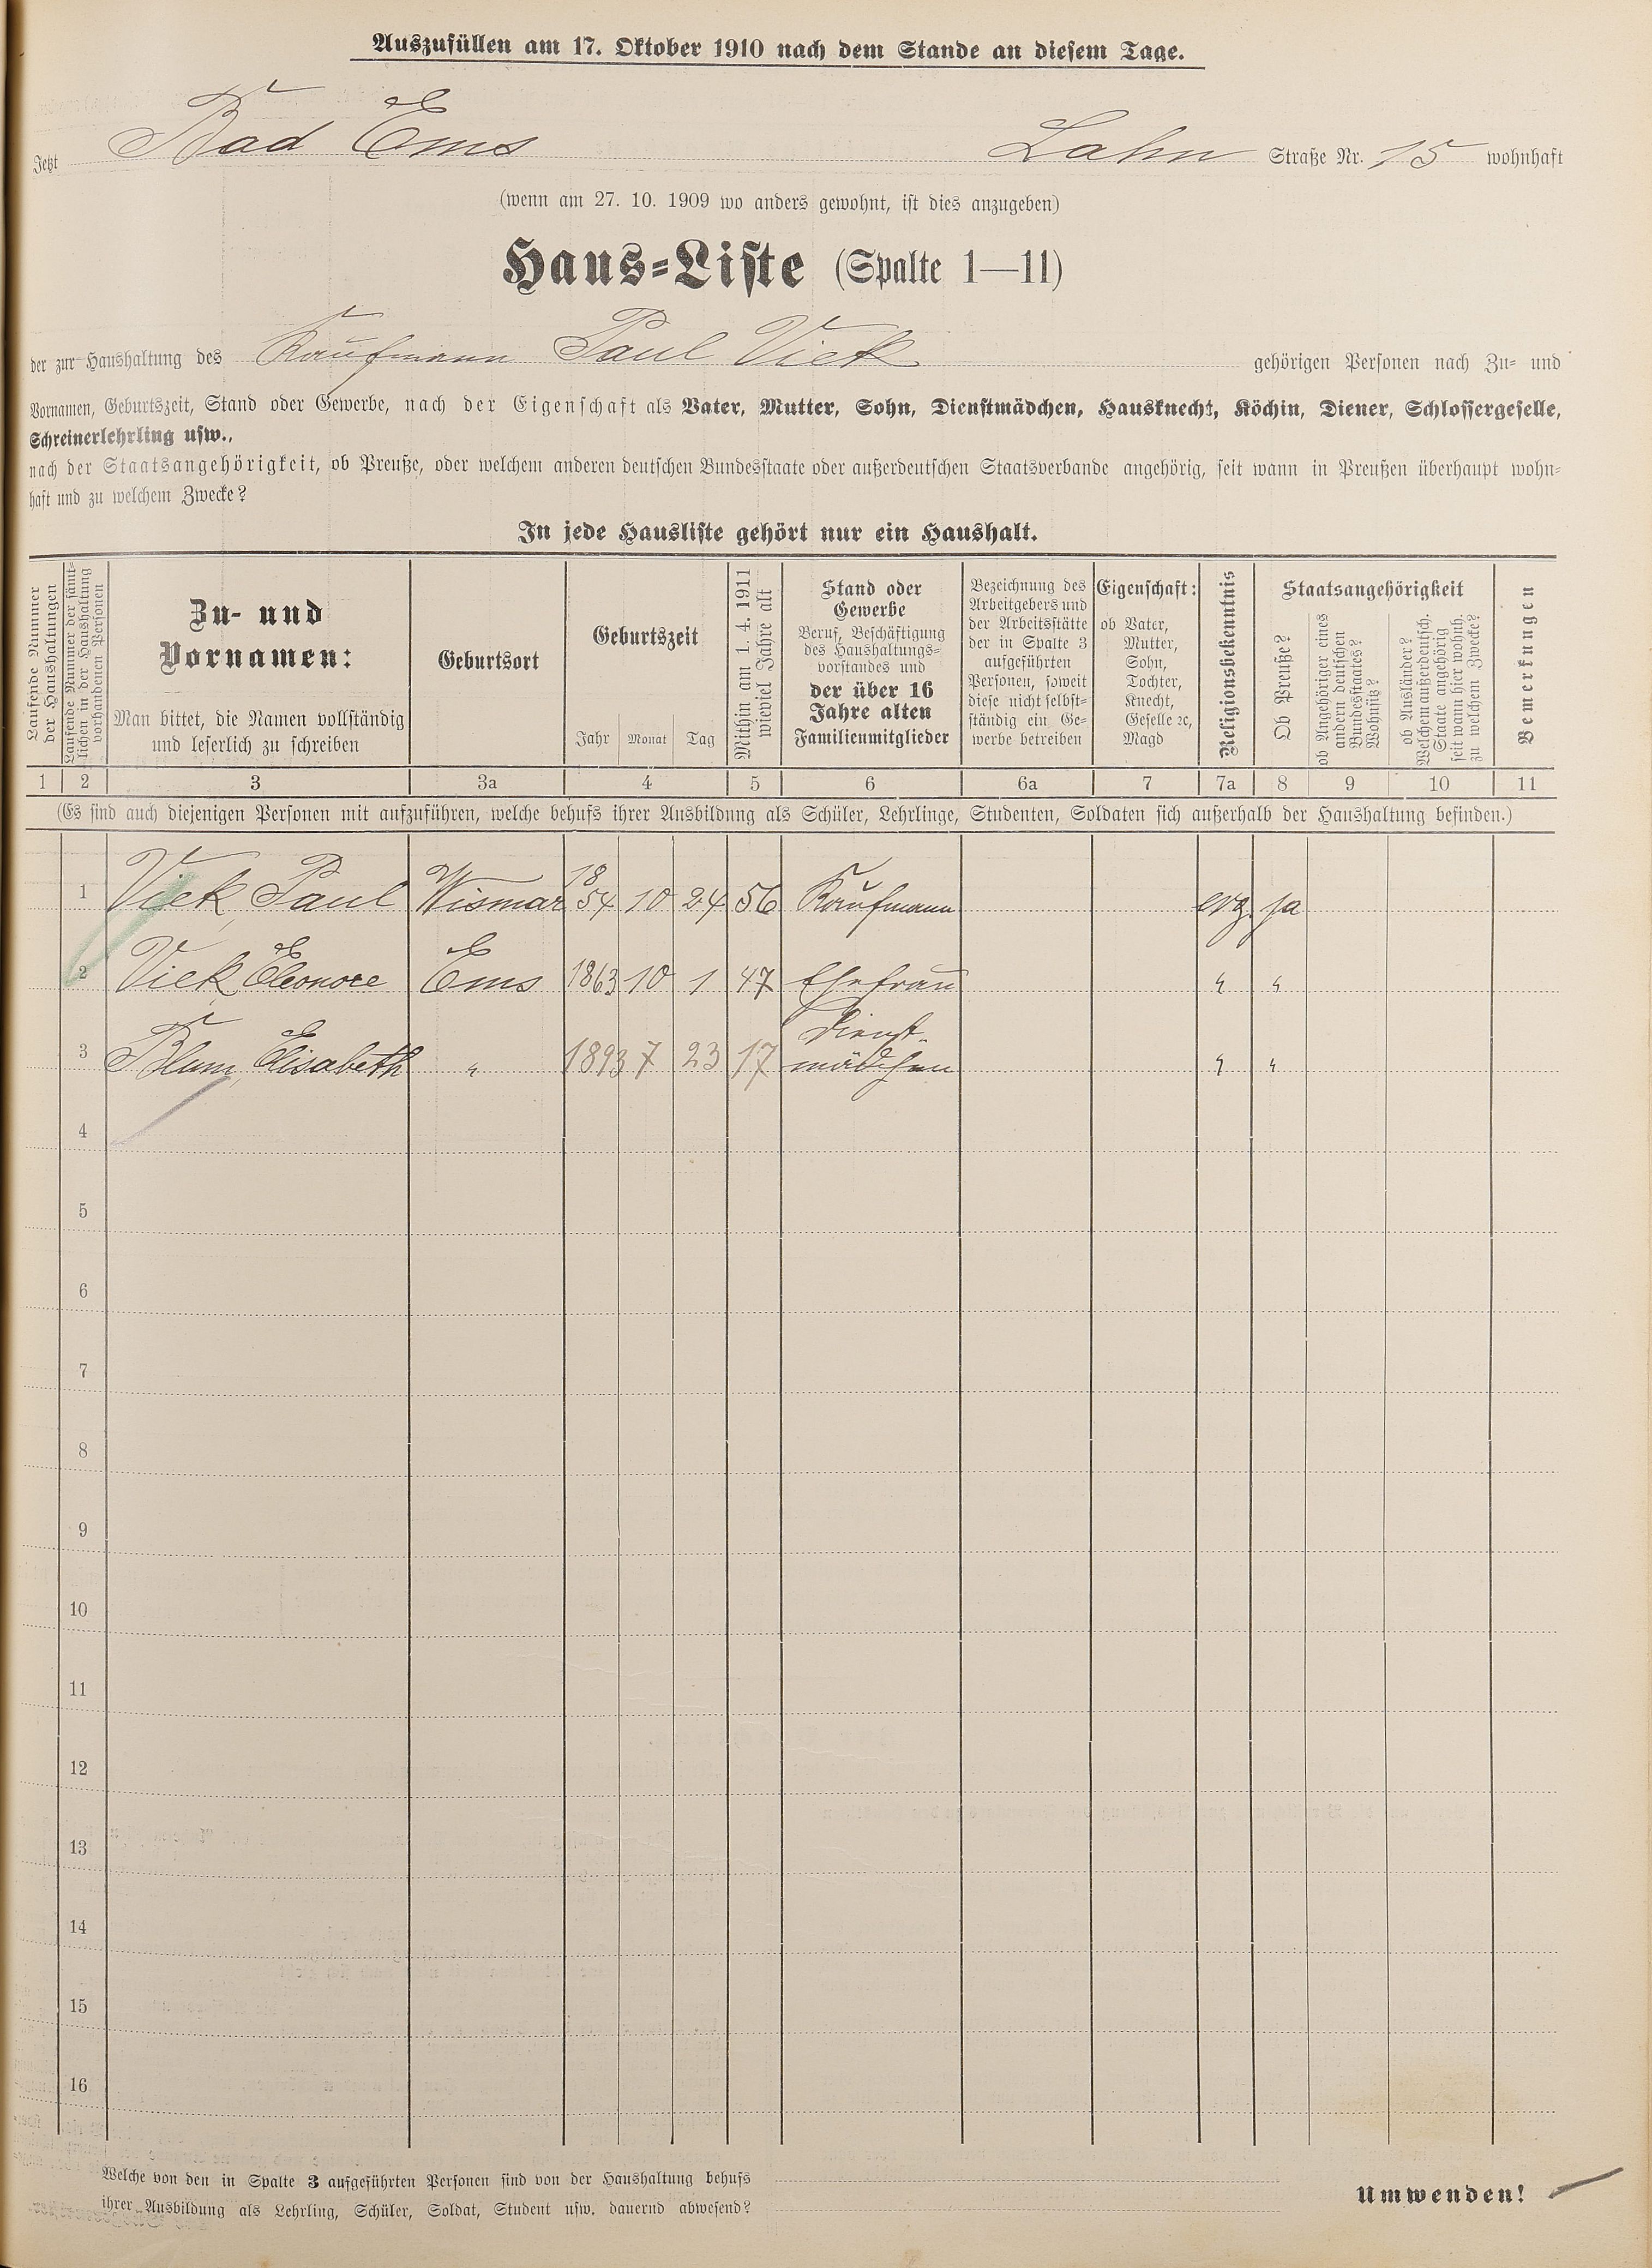 Auszufüllen am 17. Oktober 1910 nach dem Stande an diesem Tage.
Jetzt Bad Ems Lahn Straße Nr. 15 wohnhaft
(wenn am 27. 10. 1909 wo anders gewohnt, ist dies anzugeben)
Haus-Liste (Spalte 1—11)
der zur Haushaltung des Kaufmann Paul Viek gehörigen Personen nach Zu- und
Vornamen, Geburtszeit, Stand oder Gewerbe, nach der Eigenschaft als Vater, Mutter, Sohn, Dienstmädchen, Hausknecht, Köchin, Diener, Schlossergeselle,
Schreinerlehrling usw.,
nach der Staatsangehörigkeit, ob Preuße, oder welchem anderen deutschen Bundesstaate oder außerdeutschen Staatsverbande angehörig, seit wann in Preußen überhaupt wohn-
haft und zu welchem Zwecke?
In jede Hausliste gehört nur ein Haushalt.
Laufende Nummer
der Haushaltungen
Laufende Nummer der sämt-
lichen in der Haushaltung
vorhandenen Personen
Zu- und
Vornamen:
Man bittet, die Namen vollständig
und leserlich zu schreiben
Geburtsort
Geburtszeit
Jahr Monat Tag
Mithin am 1. 4. 1911
wieviel Jahre alt
Stand oder
Gewerbe
Beruf, Beschäftigung
des Haushaltungs-
vorstandes und
der über 16
Jahre alten
Familienmitglieder
Bezeichnung des
Arbeitgebers und
der Arbeitsstätte
der in Spalte 3
aufgeführten
Personen, soweit
diese nicht selbst-
ständig ein Ge-
werbe betreiben
Eigenschaft:
ob Vater,
Mutter,
Sohn,
Tochter,
Knecht,
Geselle ꝛc,
Magd
Religionsbekenntnis
Staatsangehörigkeit
Ob Preuße?
ob Angehöriger eines
andern deutschen
Bundesstaates?
Wohnsitz?
ob Ausländer?
Welchem außerdeutsch.
Staate angehörig
seit wann hier wohnh.
zu welchem Zwecke?
Bemerkungen
1 2 3 3a 4 5 6 6a 7 7a 8 9 10 11
(Es sind auch diejenigen Personen mit aufzuführen, welche behufs ihrer Ausbildung als Schüler, Lehrlinge, Studenten, Soldaten sich außerhalb der Haushaltung befinden.)
1 Viek, Paul Wismar 1854 10 24 56 Kaufmann evg. ja
2 Viek, Eleonore Ems 1863 10 1 47 Ehefrau " "
3 Blum, Elisabeth " 1893 7 23 17 Dienst-
mädchen " "
4
5
6
7
8
9
10
11
12
13
14
15
16
Welche von den in Spalte 3 aufgeführten Personen sind von der Haushaltung behufs
ihrer Ausbildung als Lehrling, Schüler, Soldat, Student usw. dauernd abwesend?
Umwenden!